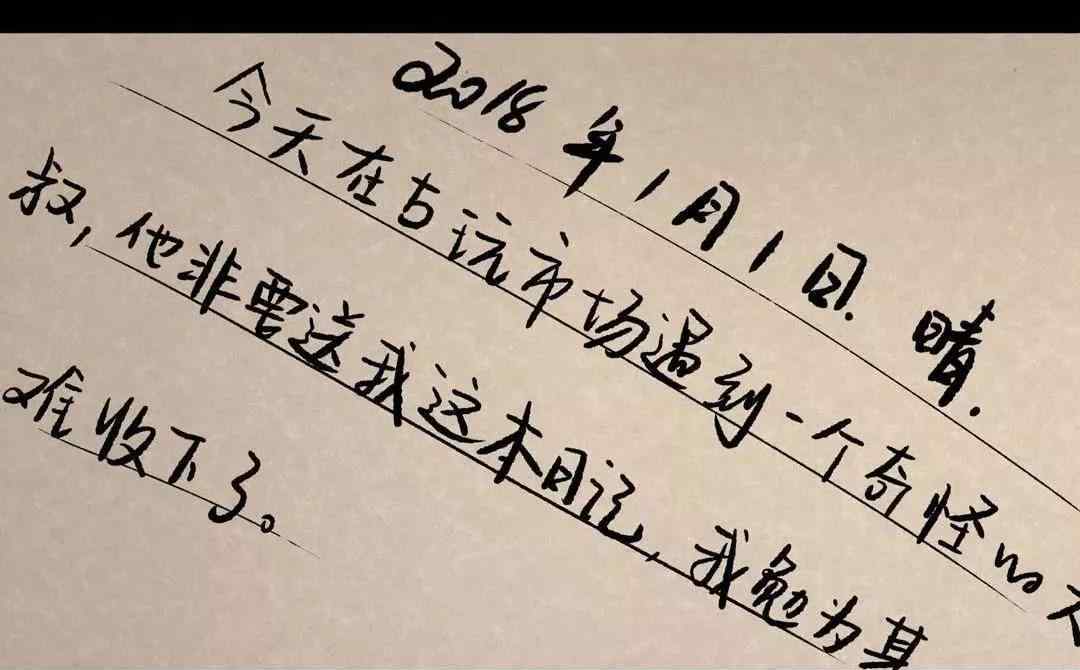 2018年1月1日. 晴.
今天在古玩市场遇到一个奇怪的大
叔,他非要送我这本日记,我勉为其
难收下了。